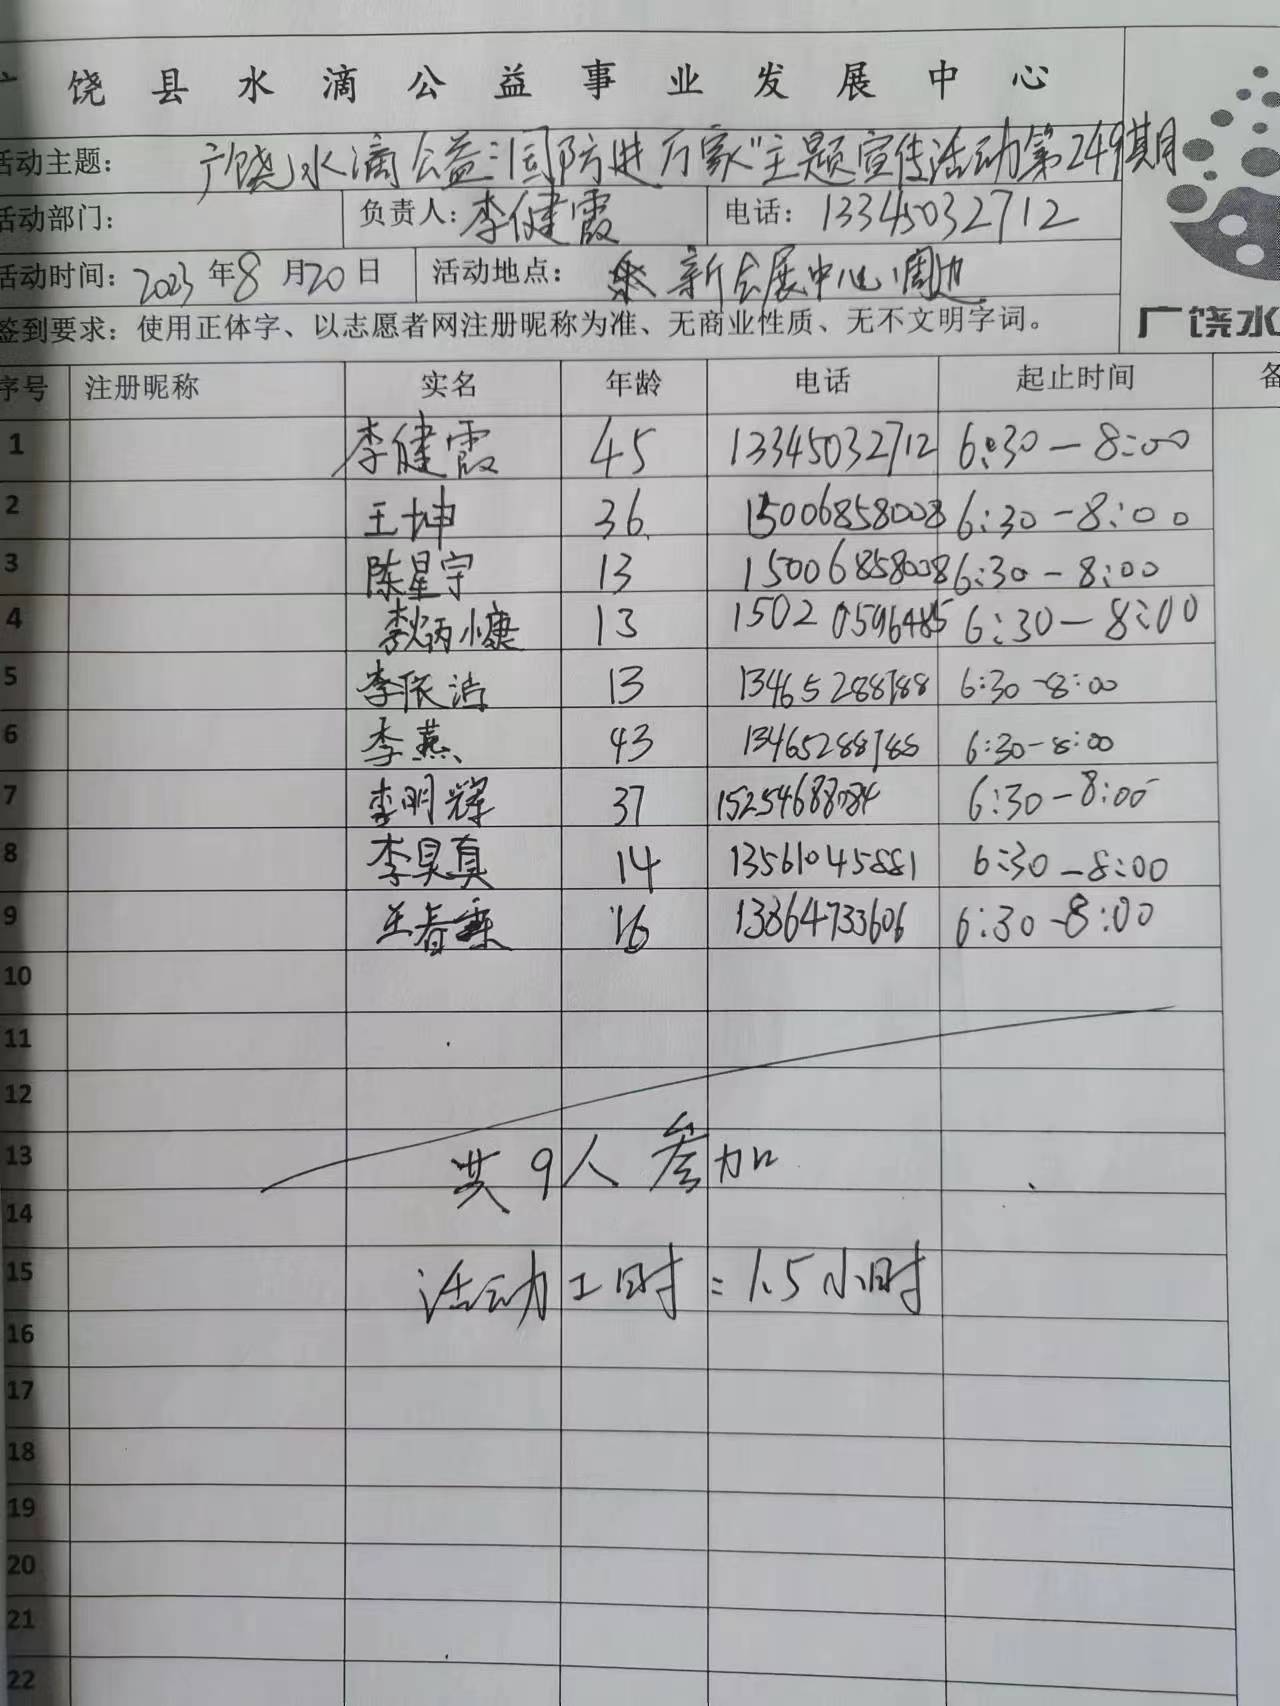 饶县水滴公益事业发展中心
活动主题: 广饶水滴公益:"国防进万家"主题宣传活动第249期
活动部门: 负责人: 李健霞 电话: 13345032712
活动时间: 2023年8月20日 活动地点: 新会展中心周边
签到要求: 使用正体字、以志愿者网注册昵称为准、无商业性质、无不文明字词。
广饶水
序号 注册昵称 实名 年龄 电话 起止时间 备
1 李健霞 45 13345032712 6:30-8:00
2 王坤 36 15006858008 6:30-8:00
3 陈星宇 13 15006858008 6:30-8:00
4 李炳慷 13 15020596485 6:30-8:00
5 李依洁 13 13465288788 6:30-8:00
6 李燕 43 13465288788 6:30-8:00
7 李明辉 37 15254688084 6:30-8:00
8 李昊真 14 13561045881 6:30-8:00
9 王春 16 13864733606 6:30-8:00
10
11
12
13 共9人参加
14
15 活动工时:1.5小时
16
17
18
19
20
21
22